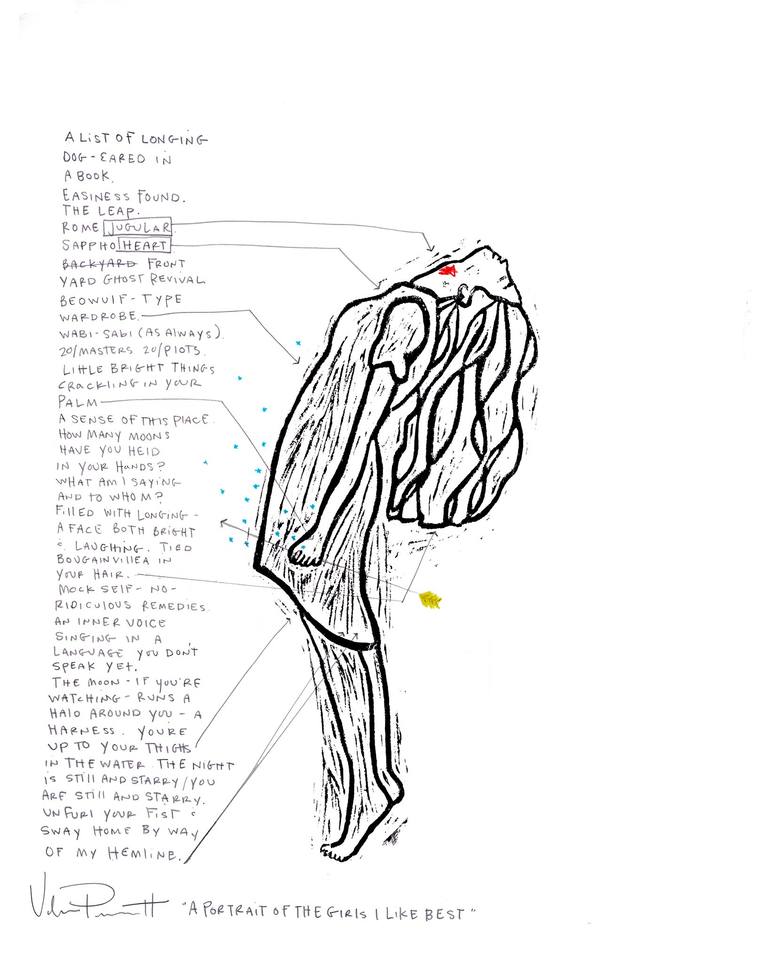 A LIST OF LONGING
DOG-EARED IN
A BOOK.
EASINESS FOUND.
THE LEAP.
ROME JUGULAR
SAPPHO HEART
BACKYARD FRONT
YARD GHOST REVIVAL
BEOWULF-TYPE
WARDROBE.
WABI-SABI (AS ALWAYS)
20/MASTERS 20/PLOTS.
LITTLE BRIGHT THINGS
CRACKLING IN YOUR
PALM
A SENSE OF THIS PLACE.
HOW MANY MOONS
HAVE YOU HELD
IN YOUR HANDS?
WHAT AM I SAYING
AND TO WHOM?
FILLED WITH LONGING -
A FACE BOTH BRIGHT
& LAUGHING. TIED
BOUGAINVILLEA IN
YOUR HAIR.
MOCK SELF-NO-
RIDICULOUS REMEDIES.
AN INNER VOICE
SINGING IN A
LANGUAGE YOU DON'T
SPEAK YET.
THE MOON - IF YOU'RE
WATCHING - RUNS A
HALO AROUND YOU - A
HARNESS. YOU'RE
UP TO YOUR THIGHS
IN THE WATER. THE NIGHT
IS STILL AND STARRY/YOU
ARE STILL AND STARRY.
UNFURL YOUR FIST &
SWAY HOME BY WAY
OF MY HEMLINE.
"A PORTRAIT OF THE GIRLS I LIKE BEST"